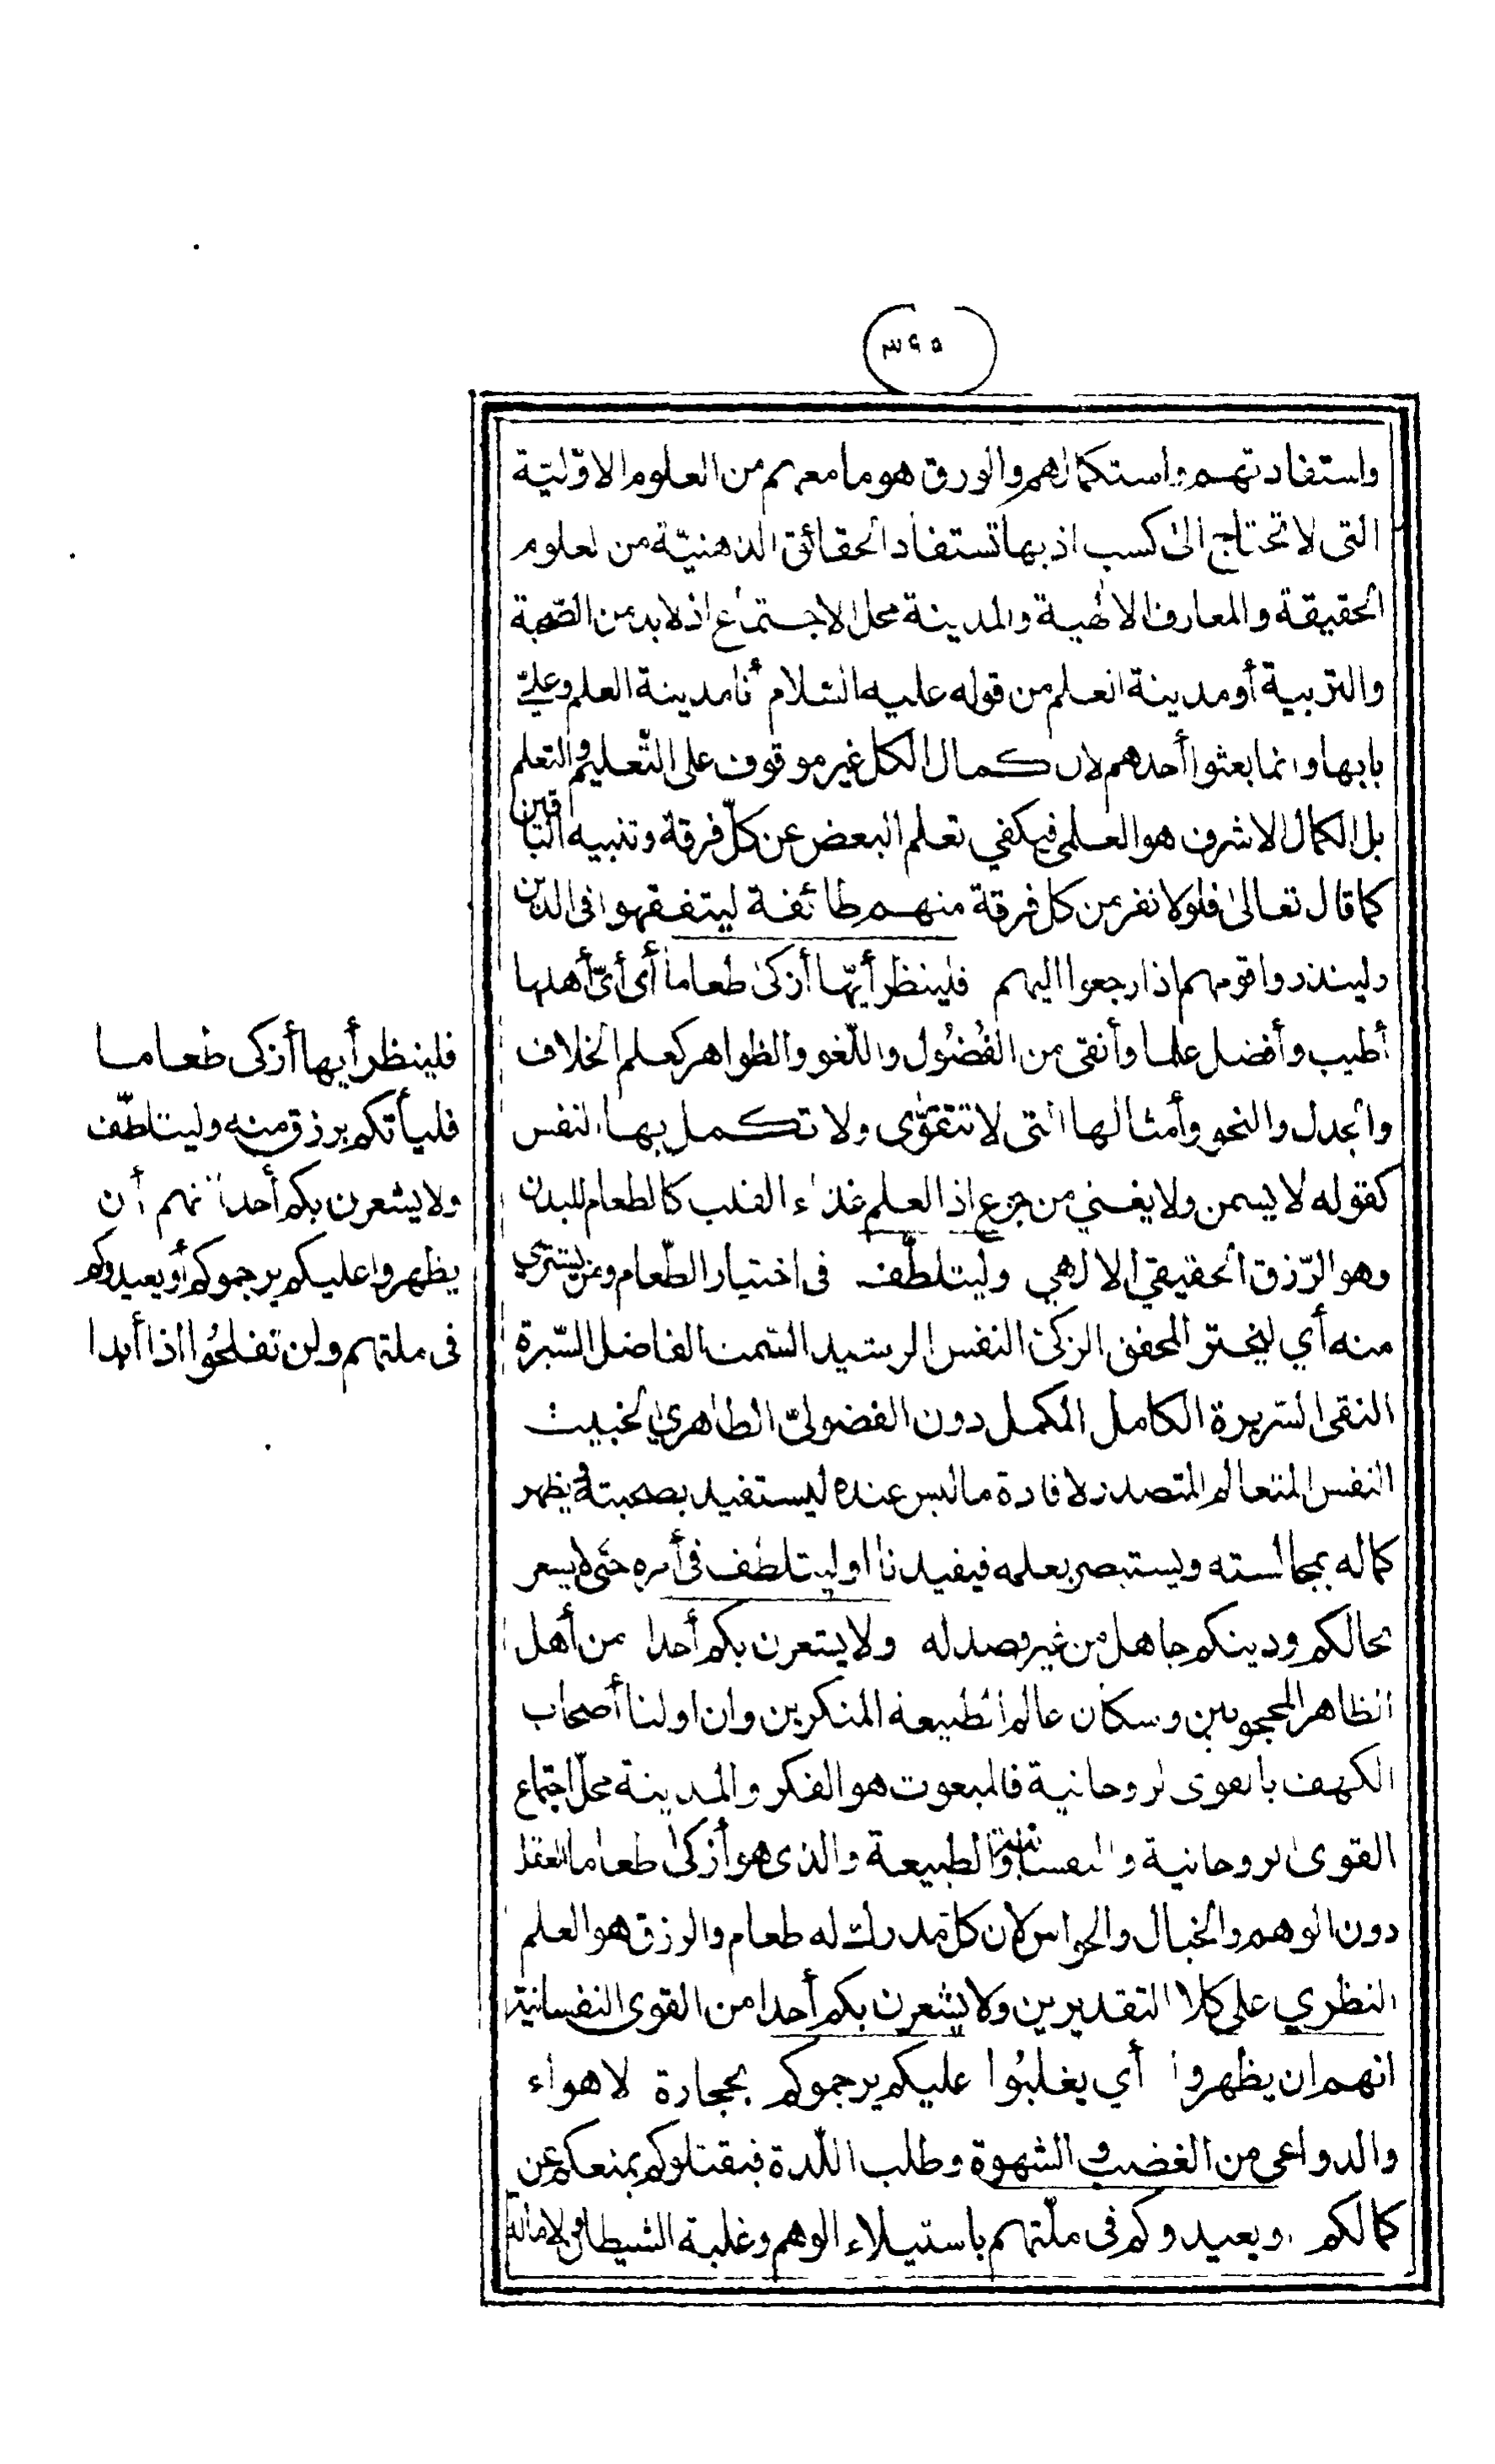 ٣٦٥
واستفادتهم واستكمالهم والورق هو ما معهم من العلوم الاوّليّة
التى لا تحتاج الى كسب اذ بها تستفاد الحقائق الذهنيّة من لعلوم
الحقيقة والمعارف الالٰهية والمدينة محل الاجتماع اذ لابد من الصّحبة
والتربية أو مدينة العلم من قوله عليه السّلام أنا مدينة العلم وعليّ
بابها وانما بعثوا أحدهم لان كمال الكل غير موقوف على التّعليم والتعلم
بل الكمال الاشرف هو العلمى فيكفي تعلم البعض عن كلّ فرقة وتنبيه الباقين
كما قال تعالى فلولا نفر من كل فرقة منهم طائفة ليتفقهوا فى الدين
ولينذروا قومهم اذا رجعوا اليهم فلينظر أيّها أزكى طعاما أى أىّ أهلها
أطيب وأفضل علما وأنقى من الفُضُول واللّغو والظواهر كعلم الخلاف
والجدل والنحو وأمثالها التى لا تتقوّى ولا تكمل بها النفس
كقوله لا يسمن ولا يغني من جوع اذ العلم غذاء القلب كالطعام للبدن
وهو الرّزق الحقيقي الالهي وليتلطّف فى اختيار الطّعام ومن يشترى
منه أي ليختر المحقق الزكىّ النفس الرشيد السّمت الفاضل السّيرة
النقى السّريرة الكامل المكمل دون الفضولىّ الظاهري الخبيث
النفس المتعالم المتصدر لافادة ما ليس عنده ليستفيد بصحبته يظهر
كماله بمجالسته ويستبصر بعلمه فيفيدنا او ليتلطف فى أمره حتى لا يشعر
بحالكم ودينكم جاهل من غير قصد له ولا يشعرن بكم أحدا من أهل
الظاهر المحجوبين وسكان عالم الطبيعة المنكرين وان اولنا أصحاب
الكهف بالقوى لروحانية فالمبعوث هو الفكر والمدينة محلّ اجتماع
القوى الروحانية والنفسانية والطبيعة والذى هو أزكى طعاما العقل
دون الوهم والخيال والحواس لان كل مدرك له طعام والرزق هو العلم
النظري على كلا التقديرين ولا يشعرن بكم أحدا من القوى النفسانية
انهم ان يظهروا أي يغلبُوا عليكم يرجموكم بحجارة لاهواء
والدواعى من الغضب والشهوة وطلب اللّذة فيقتلوكم بمنعكم عن
كمالكم ويعيدوكم فى ملّتهم باستيلاء الوهم وغلبة الشيطان
فلينظر أيها أزكى طعاما
فليأتكم برزق منه وليتلطّف
ولا يشعرن بكم أحدا انهم ان
يظهروا عليكم يرجموكم أو يعيدوكم
فى ملتهم ولن تفلحُوا اذا أبدا